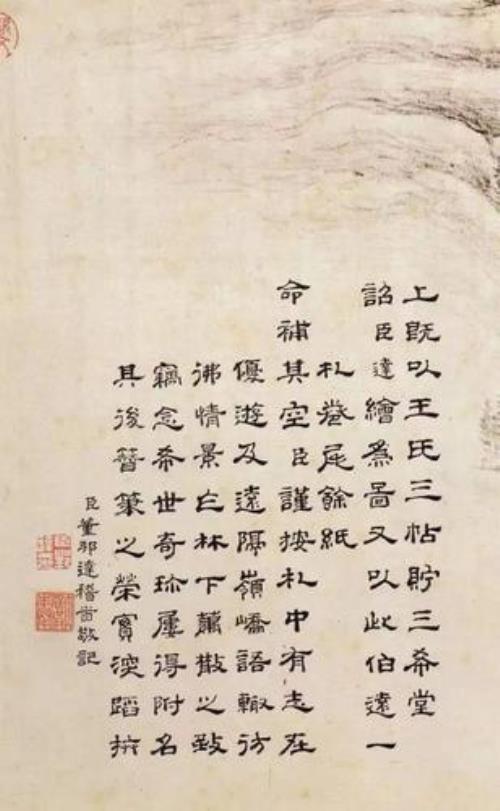 上既以王氏三帖貯三希堂
詔臣達繪為圖又以此伯遠一
札卷尾餘紙
命補其空臣謹按札中有志在
優遊及遠隔嶺嶠語輒彷
彿情景林下蕭散之致
竊念希世奇珍屢得附名
其後簪筆之榮實深蹈抃
臣董邦達稽首敬記